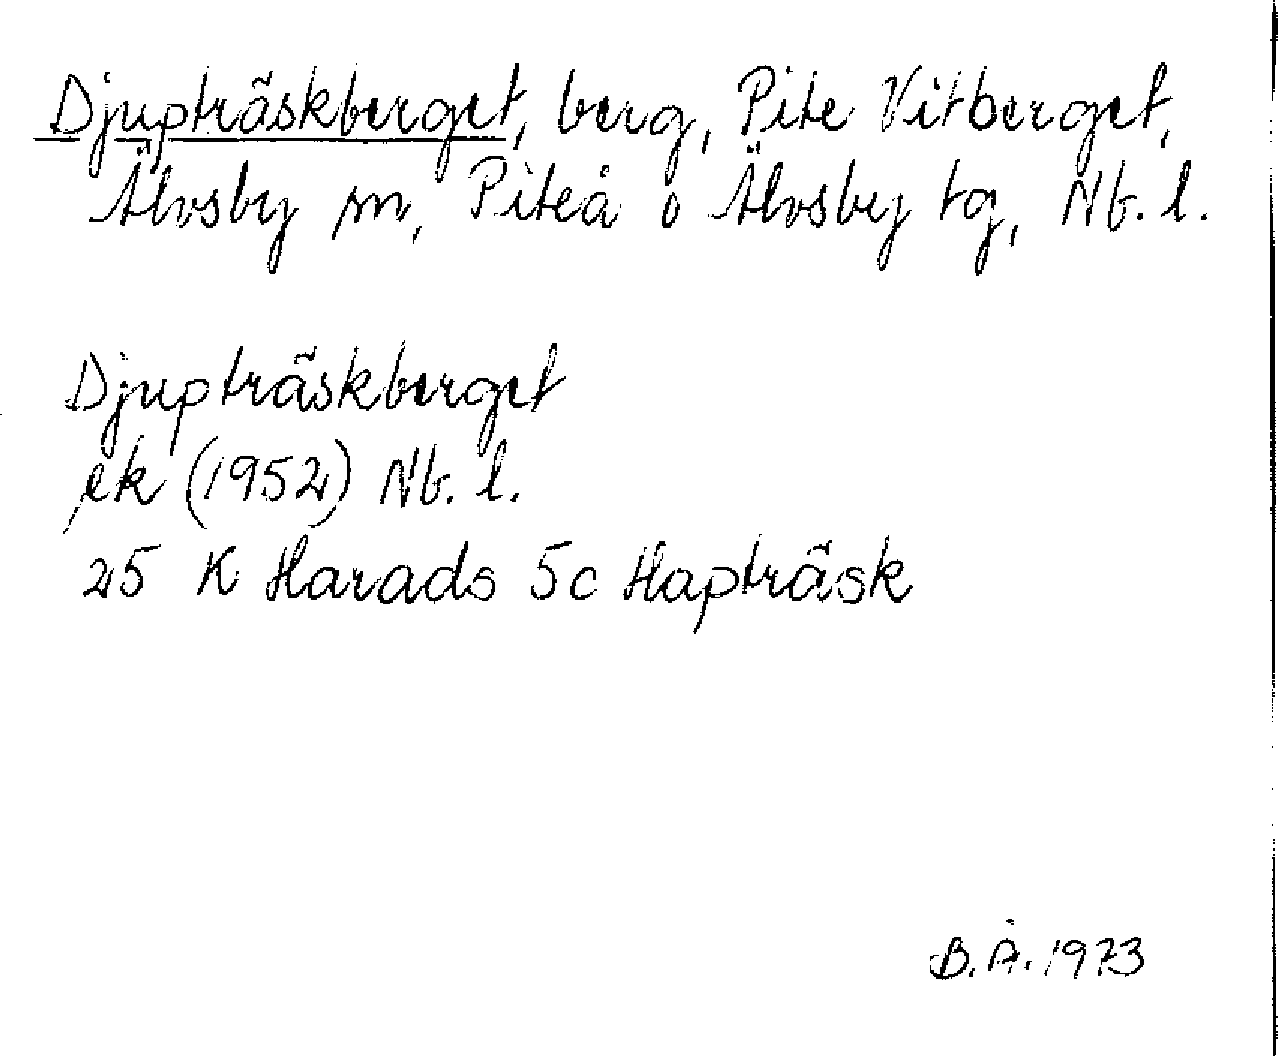 Djupträskberget, berg, Pite Vitberget,
Älvsby sn, Piteå o Älvsby tg, Nb. l.
Djupträskberget
ek (1952) Nb. l.
25 K Harads 5c Hapträsk
B.Å. 1973